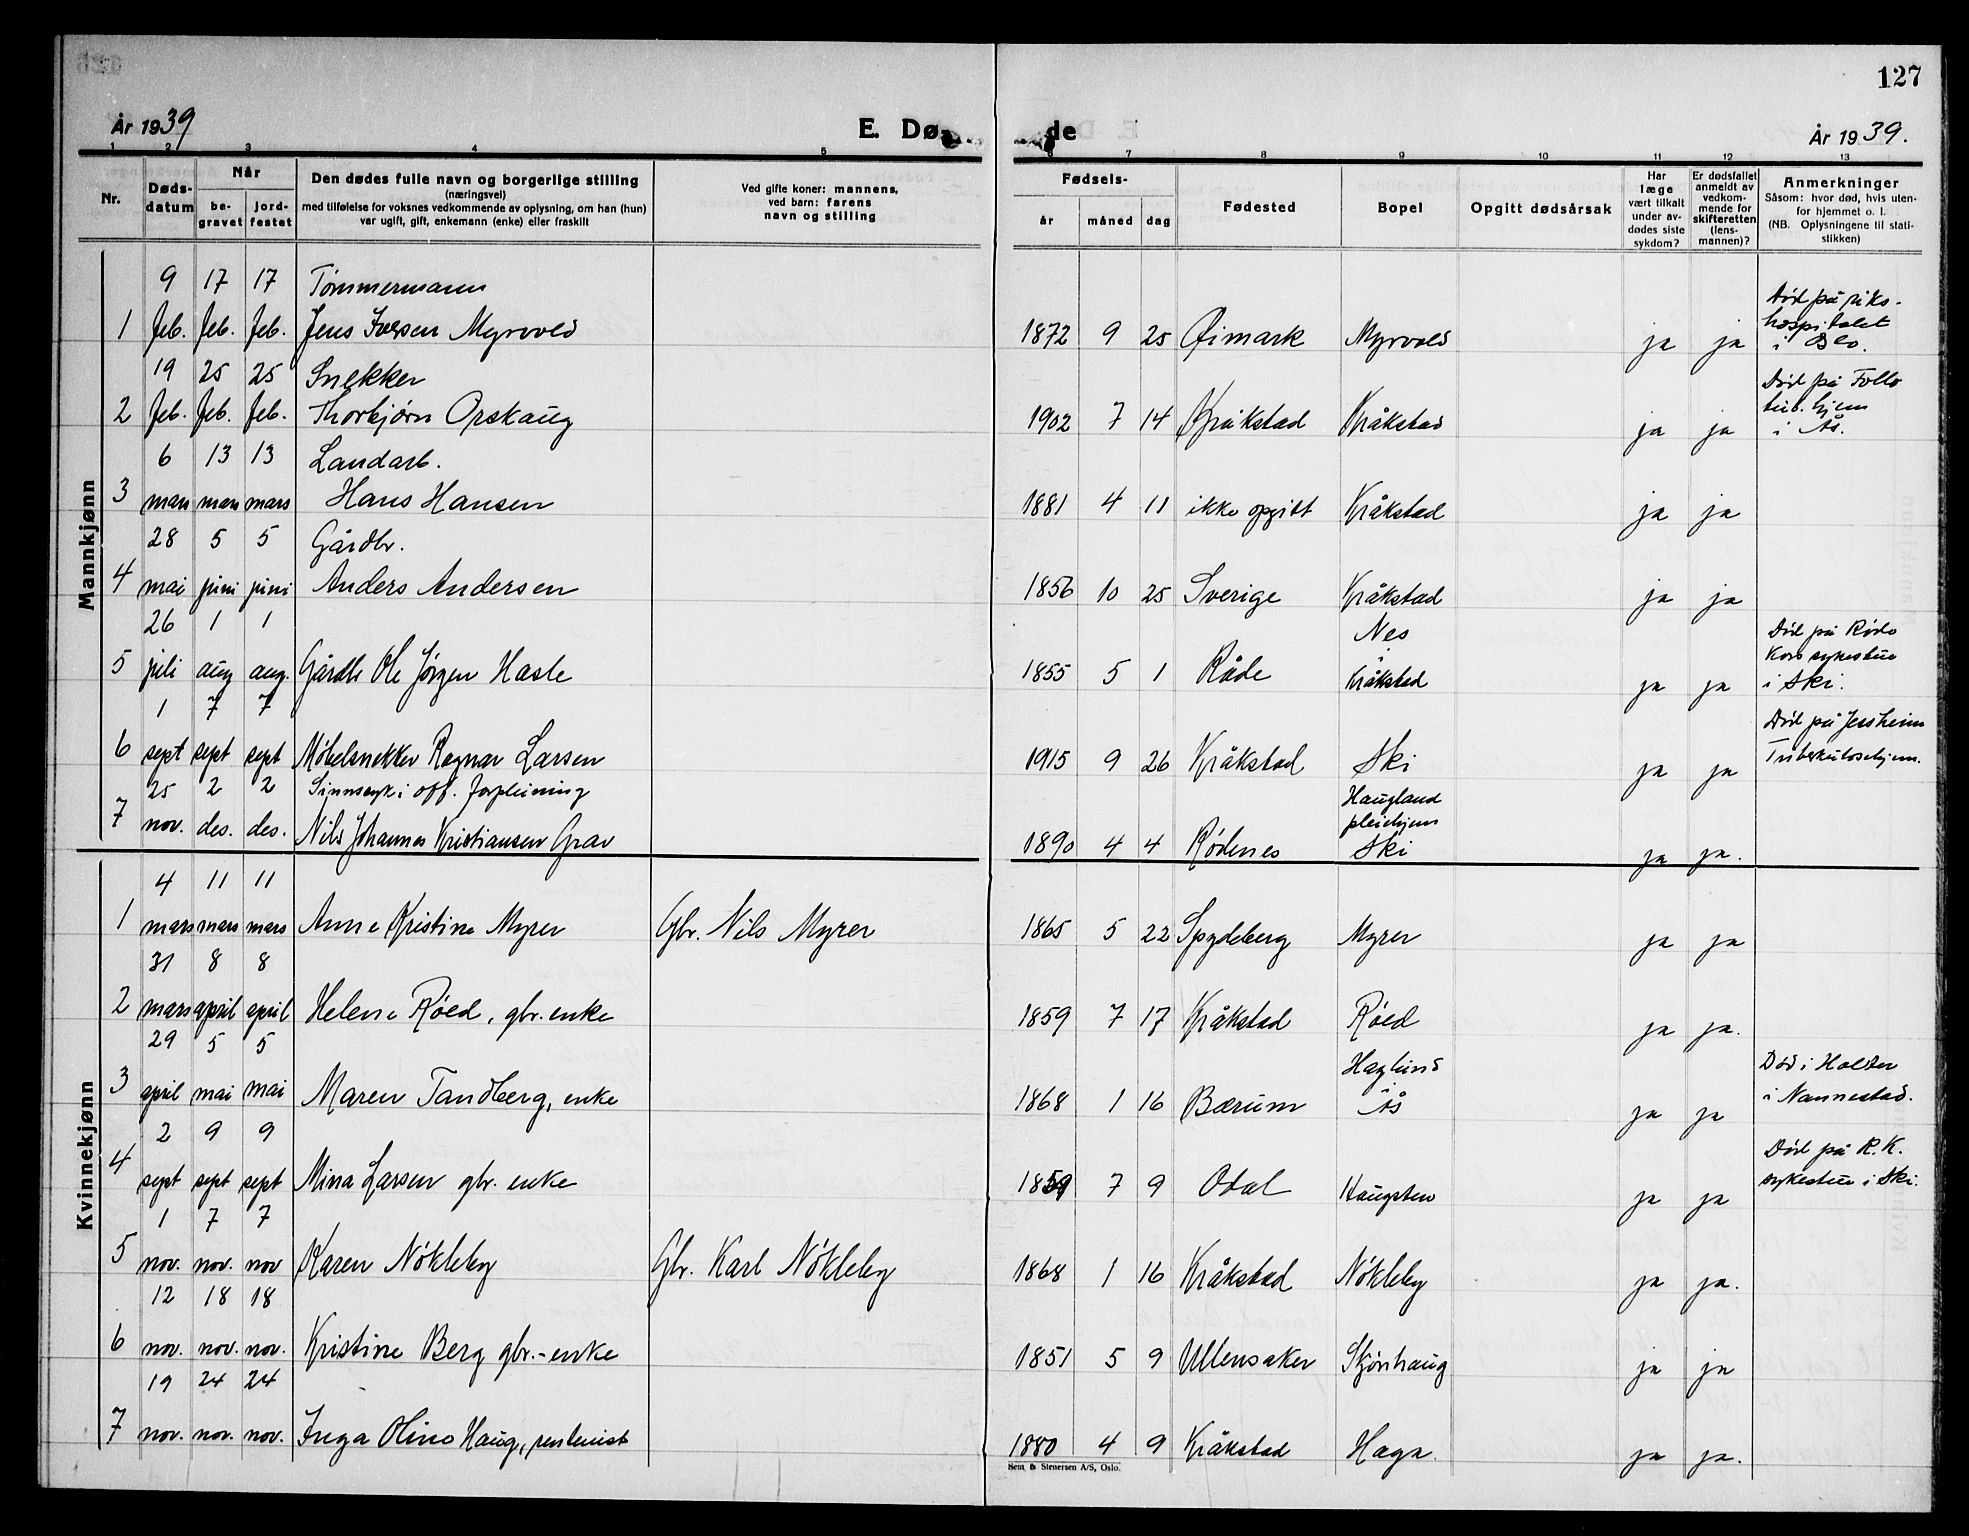 127
År 1939
E. Dø de
År 1939.
1 2 3 4 5 6 7 8 9 10 11 12 13
Nr.
Døds-
datum
Når
be-
gravet
jord-
festet
Den dødes fulle navn og borgerlige stilling
(næringsvei)
med tilføielse for voksnes vedkommende av oplysning, om han (hun)
var ugift, gift, enkemann (enke) eller fraskilt
Ved gifte koner: mannens,
ved barn: farens
navn og stilling
Fødsels-
år måned dag
Fødested
Bopel
Opgitt dødsårsak
Har
læge
vært tilkalt
under av-
dødes siste
sykdom?
Er dødsfallet
anmeldt av
vedkom-
mende for
skifteretten
(lens-
mannen)?
Anmerkninger
Såsom: hvor død, hvis uten-
for hjemmet o. l.
(NB. Oplysningene til stati-
stikken)
Mannkjønn
9 17 17 Tømmermann
1 feb. feb. feb. Jens Iversen Myrvold 1872 9 25 Øimark Myrvold ja ja
Død på riks-
hospitalet
i Oslo.
19 25 25 Snekker
2 feb. feb. feb. Thorbjørn Orskaug 1902 7 14 Kråkstad Kråkstad ja ja
Død på Follo
tub. hjem
i Ås.
6 13 13 Landarb.
3 mars mars mars Hans Hansen 1881 4 11 ikke opgitt Kråkstad ja ja
28 5 5 Gårdbr.
4 mai juni juni Anders Andersen 1856 10 25 Sverige Kråkstad ja ja
26 1 1
5 juli aug aug. Gårdbr Ole Jørgen Hasle 1855 5 1 Råde
Nes
i
Kråkstad ja ja
Død på Røde
Kors sykestue
i Ski.
1 7 7
6 sept sept sept Møbelsnekker Ragnar Larsen 1915 9 26 Kråkstad Ski ja ja
Død på Jessheim
Tuberkulosehjem.
25 2 2 Sinnssyk i off. forpleining
7 nov. des. des. Nils Johannes Kristiansen Grav 1890 4 4 Rødenes
Haugland
pleiehjem
Ski ja ja.
Kvinnekjønn
4 11 11
1 mars mars mars Anne Kristine Myrer Gbr. Nils Myrer 1865 5 22 Spydeberg Myrer ja ja
31 8 8
2 mars april april Helene Røed, gbr. enke 1859 7 17 Kråkstad Røed ja ja.
29 5 5
3 april mai mai Maren Tandberg, enke 1868 1 16 Bærum
Haglund
i
Ås ja ja
Død i Holter
i Nannestad.
2 9 9
4 sept sept sept Mina Larsen gbr. enke 1859 7 9 Odal Haugsten ja ja
Død på R.K.
sykestue i Ski.
1 7 7
5 nov. nov. nov Karen Nökleby Gbr. Karl Nökleby 1868 1 16 Kråkstad Nökleby ja ja.
12 18 18
6 nov. nov. nov. Kristine Berg gbr.-enke 1851 5 9 Ullensaker Skjönhaug ja ja
19 24 24
7 nov. nov. nov. Inga Oline Haug, rentenist 1880 4 9 Kråkstad Haga. ja ja.
Sem & Stenersen A/S, Oslo.